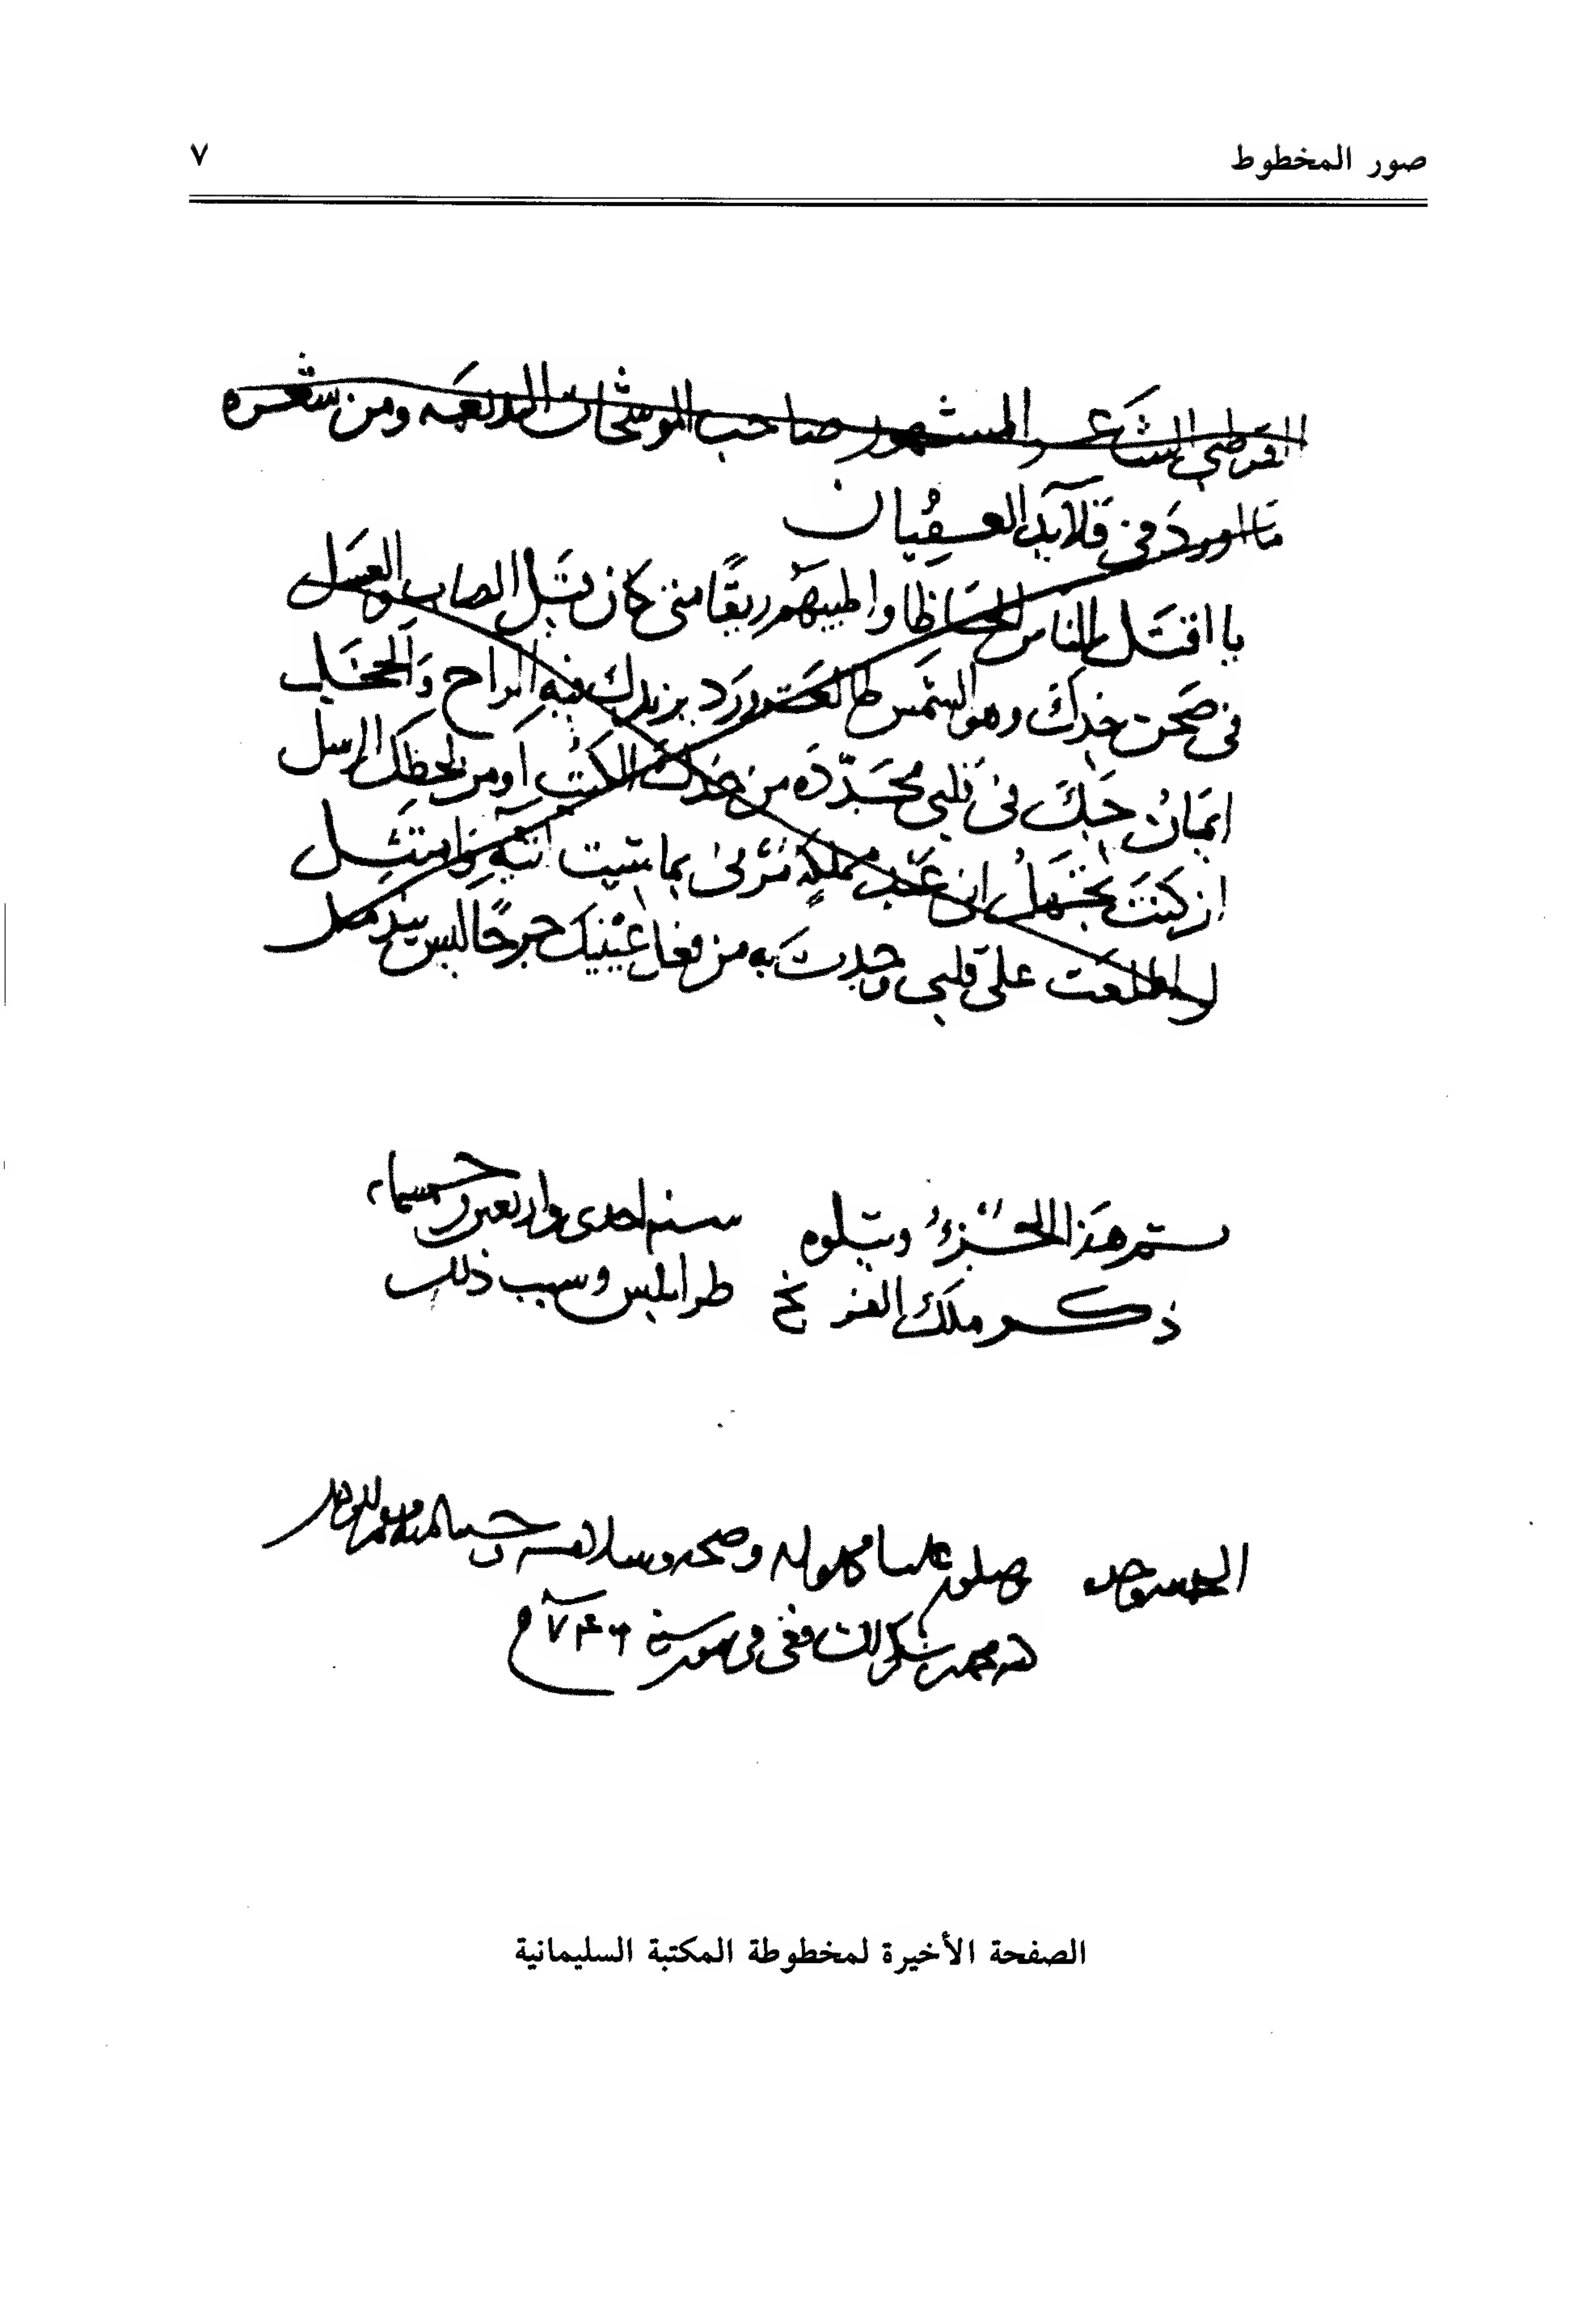 صور المخطوط
٧
القرطبي الشاعر المشهور صاحب الموشحات البديعه ومن شعره
ما اورد في قلآيد العقيان
يا اقتل الناس الحاظا واطيبهم ريقًا متى كان قبل الصاب والعسل
في صحن خدك وهو الشمس طالعة ورد يزيدك فيه الراح والخجل
ايمان حبك في قلبي مجددة من خدك الكتب او من لحظك الرسل
ان كنت تجهل اني عبد مملكة مرني بما شيت آتيه وامتثل
لو اطلعت على قلبي وجدت به من فعل عينيك جرحًا ليس يندمل
تم هذا الجزء ويتلوه سنه احدى واربعين وخمسمايه
ذكر ملك الفرنج طرابلس وسبب ذلك
الحمد لله وحده وصلواته على وصحبه وسلامه حسبنا الله
في سنة
الصفحة الأخيرة لمخطوطة المكتبة السليمانية